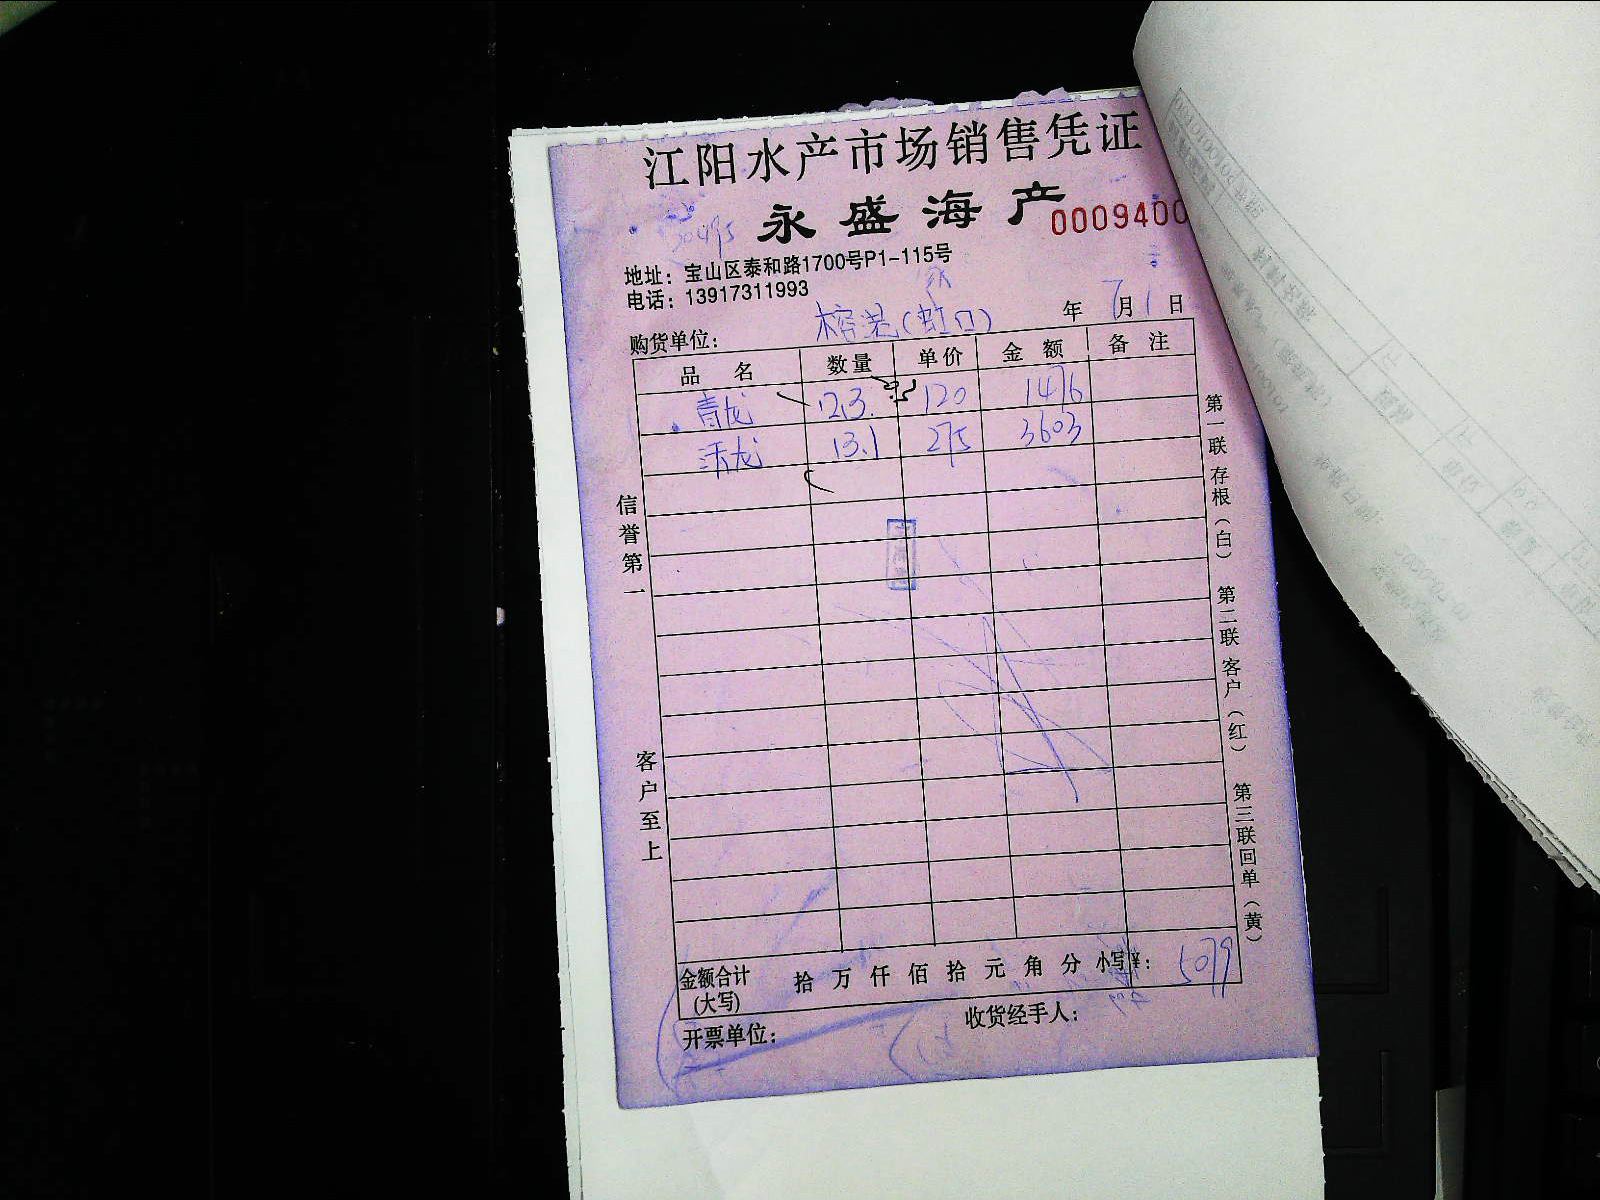 江阳水产市场销售凭证
永盛海产
0009400
地址：宝山区泰和路1700号P1-115号
电话：13917311993
购货单位： (虹口) 年 7月1日
品名 数量 单价 金额 备注
青龙 12.3. 120 1476
沃龙 13.1 275 3603
信誉第一
客户至上
第一联存根（白） 第二联客户（红） 第三联回单（黄）
金额合计(大写) 拾万仟佰拾元角分 小写¥： 5079
开票单位： 收货经手人：